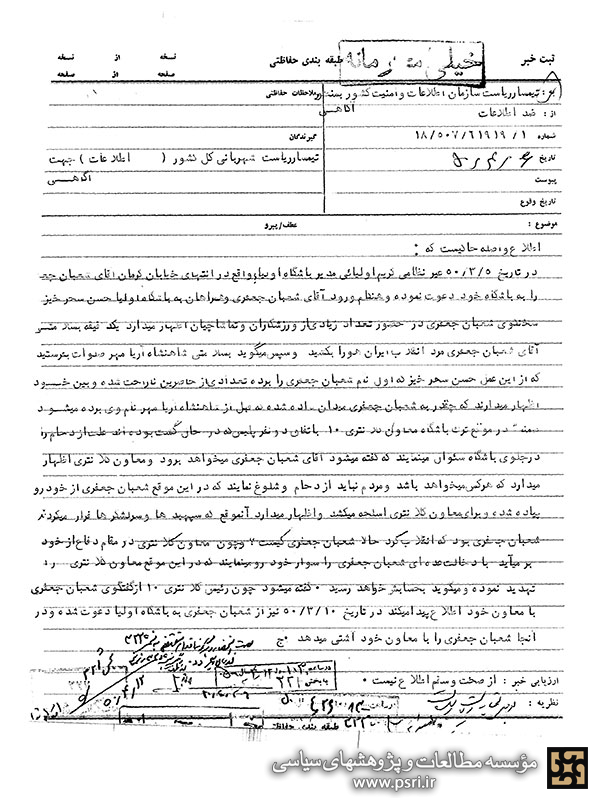 ثبت خبر
طبقه بندی حفاظتی
خیلی محرمانه
نسخه از نسخه
صفحه از صفحه
به : تیمسار ریاست سازمان اطلاعات و امنیت کشور
آگاهی
ملاحظات حفاظتی
از : ضد اطلاعات
گیرندگان
شماره
تیمسار ریاست شهربانی کل کشور ( اطلاعات ) جهت
آگاهی
تاریخ
پیوست
تاریخ وقوع
موضوع :
عطف/پیرو
اطلاع واصله حاکیست که :
در تاریخ ۵۰/۳/۵ غیر نظامی کریم اولیائی مدیر باشگاه اولیا واقع در انتهای خیابان کرمان آقای شعبان جعفری
را به باشگاه خود دعوت نموده و هنگام ورود آقای شعبان جعفری و همراهان به باشگاه اولیا حسن سحر خیز
سخنگوی شعبان جعفری در حضور تعداد زیادی از ورزشکاران و تماشاچیان اظهار میدارد یکه نیفه بسلامتی
آقای شعبان جعفری مرد انقلاب ایران هورا بکشید و سپس میگوید بسلامتی شاهنشاه آریا مهر صلوات بفرستید
که از این عمل حسن سحر خیز که اول نام شعبان جعفری را برده تعدادی از حاضرین ناراحت شده و بین خود
اظهار میدارند که چقدر به شعبان جعفری میدان داده شده که قبل از شاهنشاه آریا مهر نام وی برده میشود
ضمناً در موقع ترک باشگاه معاون کلانتری ۱۰ باتفاق دو نفر پلیس که در حال گشت بوده اند علت ازدحام را
در جلوی باشگاه سئوال مینمایند که گفته میشود آقای شعبان جعفری میخواهد برود و معاون کلانتری اظهار
میدارد که هرکس میخواهد باشد و مردم نباید ازدحام و شلوغ نمایند که در این موقع شعبان جعفری از خودرو
پیاده شده و برای معاون کلانتری اسلحه میکشد و اظهار میدارد آنموقع که سپهبد ها و سرلشگر ها فرار میکردند
شعبان جعفری بود که انقلاب کرد حالا شعبان جعفری کیست؟ و چون معاون کلانتری در مقام دفاع از خود
بر میآید با دخالت عده ای شعبان جعفری را سوار خودرو مینمایند که در این موقع معاون کلانتری را
تهدید نموده و میگوید بحسابش خواهد رسید ۰ گفته میشود چون رئیس کلانتری ۱۰ از گفتگوی شعبان جعفری
با معاون خود اطلاع پیدا میکند در تاریخ ۵۰/۳/۱۰ نیز از شعبان جعفری به باشگاه اولیا دعوت شده و در
آنجا شعبان جعفری را با معاون خود آشتی میدهد ۰ ج
ارزیابی خبر : از صحت و سقم اطلاعی نیست ۰
نظریه :
طبقه بندی حفاظتی
مؤسسه مطالعات و پژوهشهای سیاسی
www.psri.ir